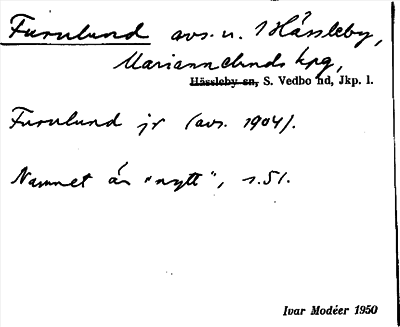 Furulund avs. u. 1 Hässleby,
Mariannelunds kpg,
Hässleby sn, S. Vedbo hd, Jkp. l.
Furulund jr (avs. 1904).
Namnet är "nytt", s. 51.
Ivar Modéer 1950